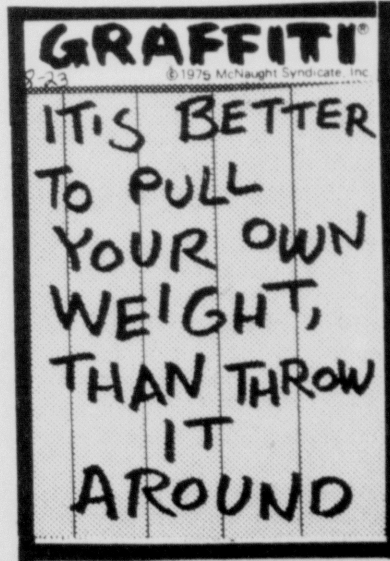 GRAFFITI®
8-23 ©1975 McNaught Syndicate, Inc.
IT'S BETTER
TO PULL
YOUR OWN
WEIGHT,
THAN THROW
IT
AROUND